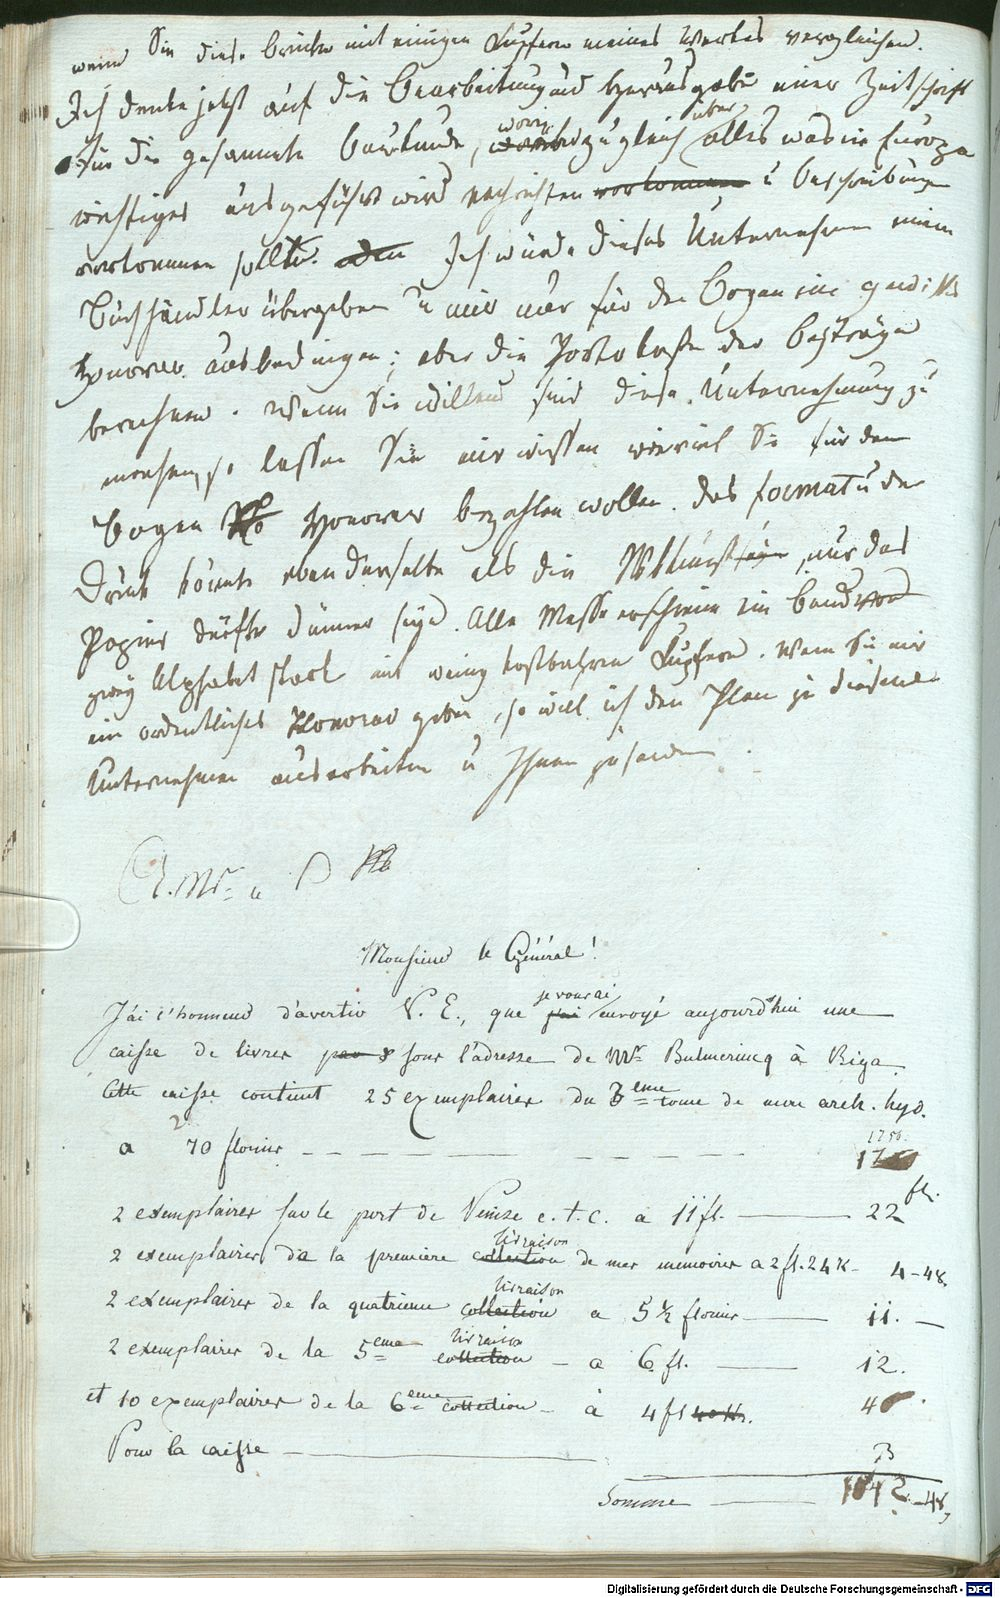 wenn Sie diese Brücke mit einigen Kupfern meines Werkes vergleichen.
Ich denke jetzt auf die Bearbeitung und Herausgabe einer Zeitschrift
für die gesammte Baukunde, worin zugleich über alles was in Europa
wichtiges ausgeführt wird nachrichten vorkommen u Beschreibungen
vorkommen sollten. Ich würde dieses Unternehmen einem
Buchhändler übergeben u mir nur für den Bogen ein
Honorar ausbedingen; aber die Postokosten der Beyträge
berechnen. Wenn Sie willens sind diese Unternehmung zu
machen, so lassen Sie mir wissen wieviel Sie für den
Bogen Honorar bezahlen wollen. das format u der
Druck könnte eben derselbe als die , nur das
Papier dürfte dünner seyn. Alle Messe erscheine ein Band von
zwey Alphabet stark mit wenig kostbahren Kupfern. Wenn Sie mir
ein ordentliches Honorar geben, so will ich den Plan zu diesem
Unternehmen ausarbeiten u Ihnen zusenden.
Monsieur le Général!
je vous ai
J'ai l'honneur d'avertir V. E., que j'ai envoyé aujourd'hui une
caisse de livres par sous l'adresse de Mr Bulmerincq à Riga.
Cette caisse contient 25 exemplaires du 3eme tome de mon arch. hyd.
a 70 florins 1750.
2 exemplaires sur le port de Venise e.t.c. a 11 fl. 22 fl.
livraison
2 exemplaires de la premiere collection de mes memoires a 2 fl. 24 K 4-48.
livraison
2 exemplaires de la quatrieme collection a 5 ½ florins 11.
livraison
2 exemplaires de la 5eme collection - a 6 fl. 12.
et 10 exemplaires de la 6eme collection - à 4 fl 40 K. 40.
Pour la caisse 3
Somme 1842.-48,
Digitalisierung gefördert durch die Deutsche Forschungsgemeinschaft - DFG